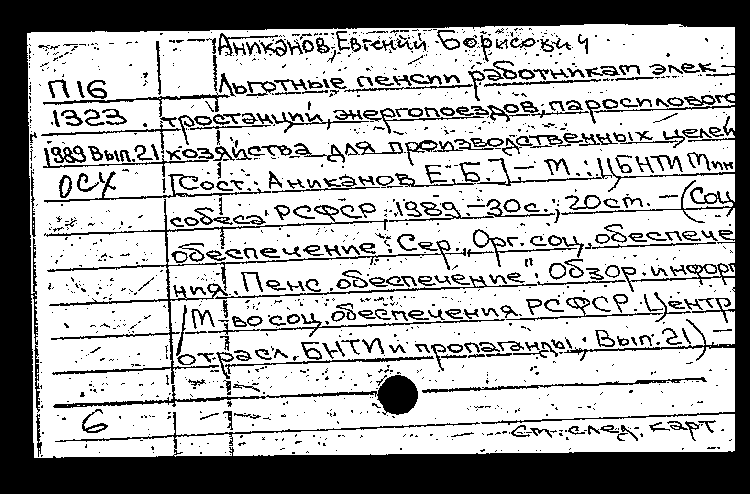 Аниканов, Евгений Борисович
П16 Льготные пенсии работникам элек-
1323. тростанций, энергопоездов, паросилового
1989 Вып.21 хозяйства для производственных целей
ОСХ [Сост.: Аниканов Е.Б.]. – М.: ЦБНТИ Мин
собеса РСФСР, 1989. – 30с.; 20см. – (Соц.
обеспечение: Сер. „Орг. соц. обеспече
ния. Пенс. обеспечение": Обзор. информ
/М-во соц. обеспечения РСФСР. Центр
отрасл. БНТИ и пропаганды; Вып. 21) –
6
См. след. карт.